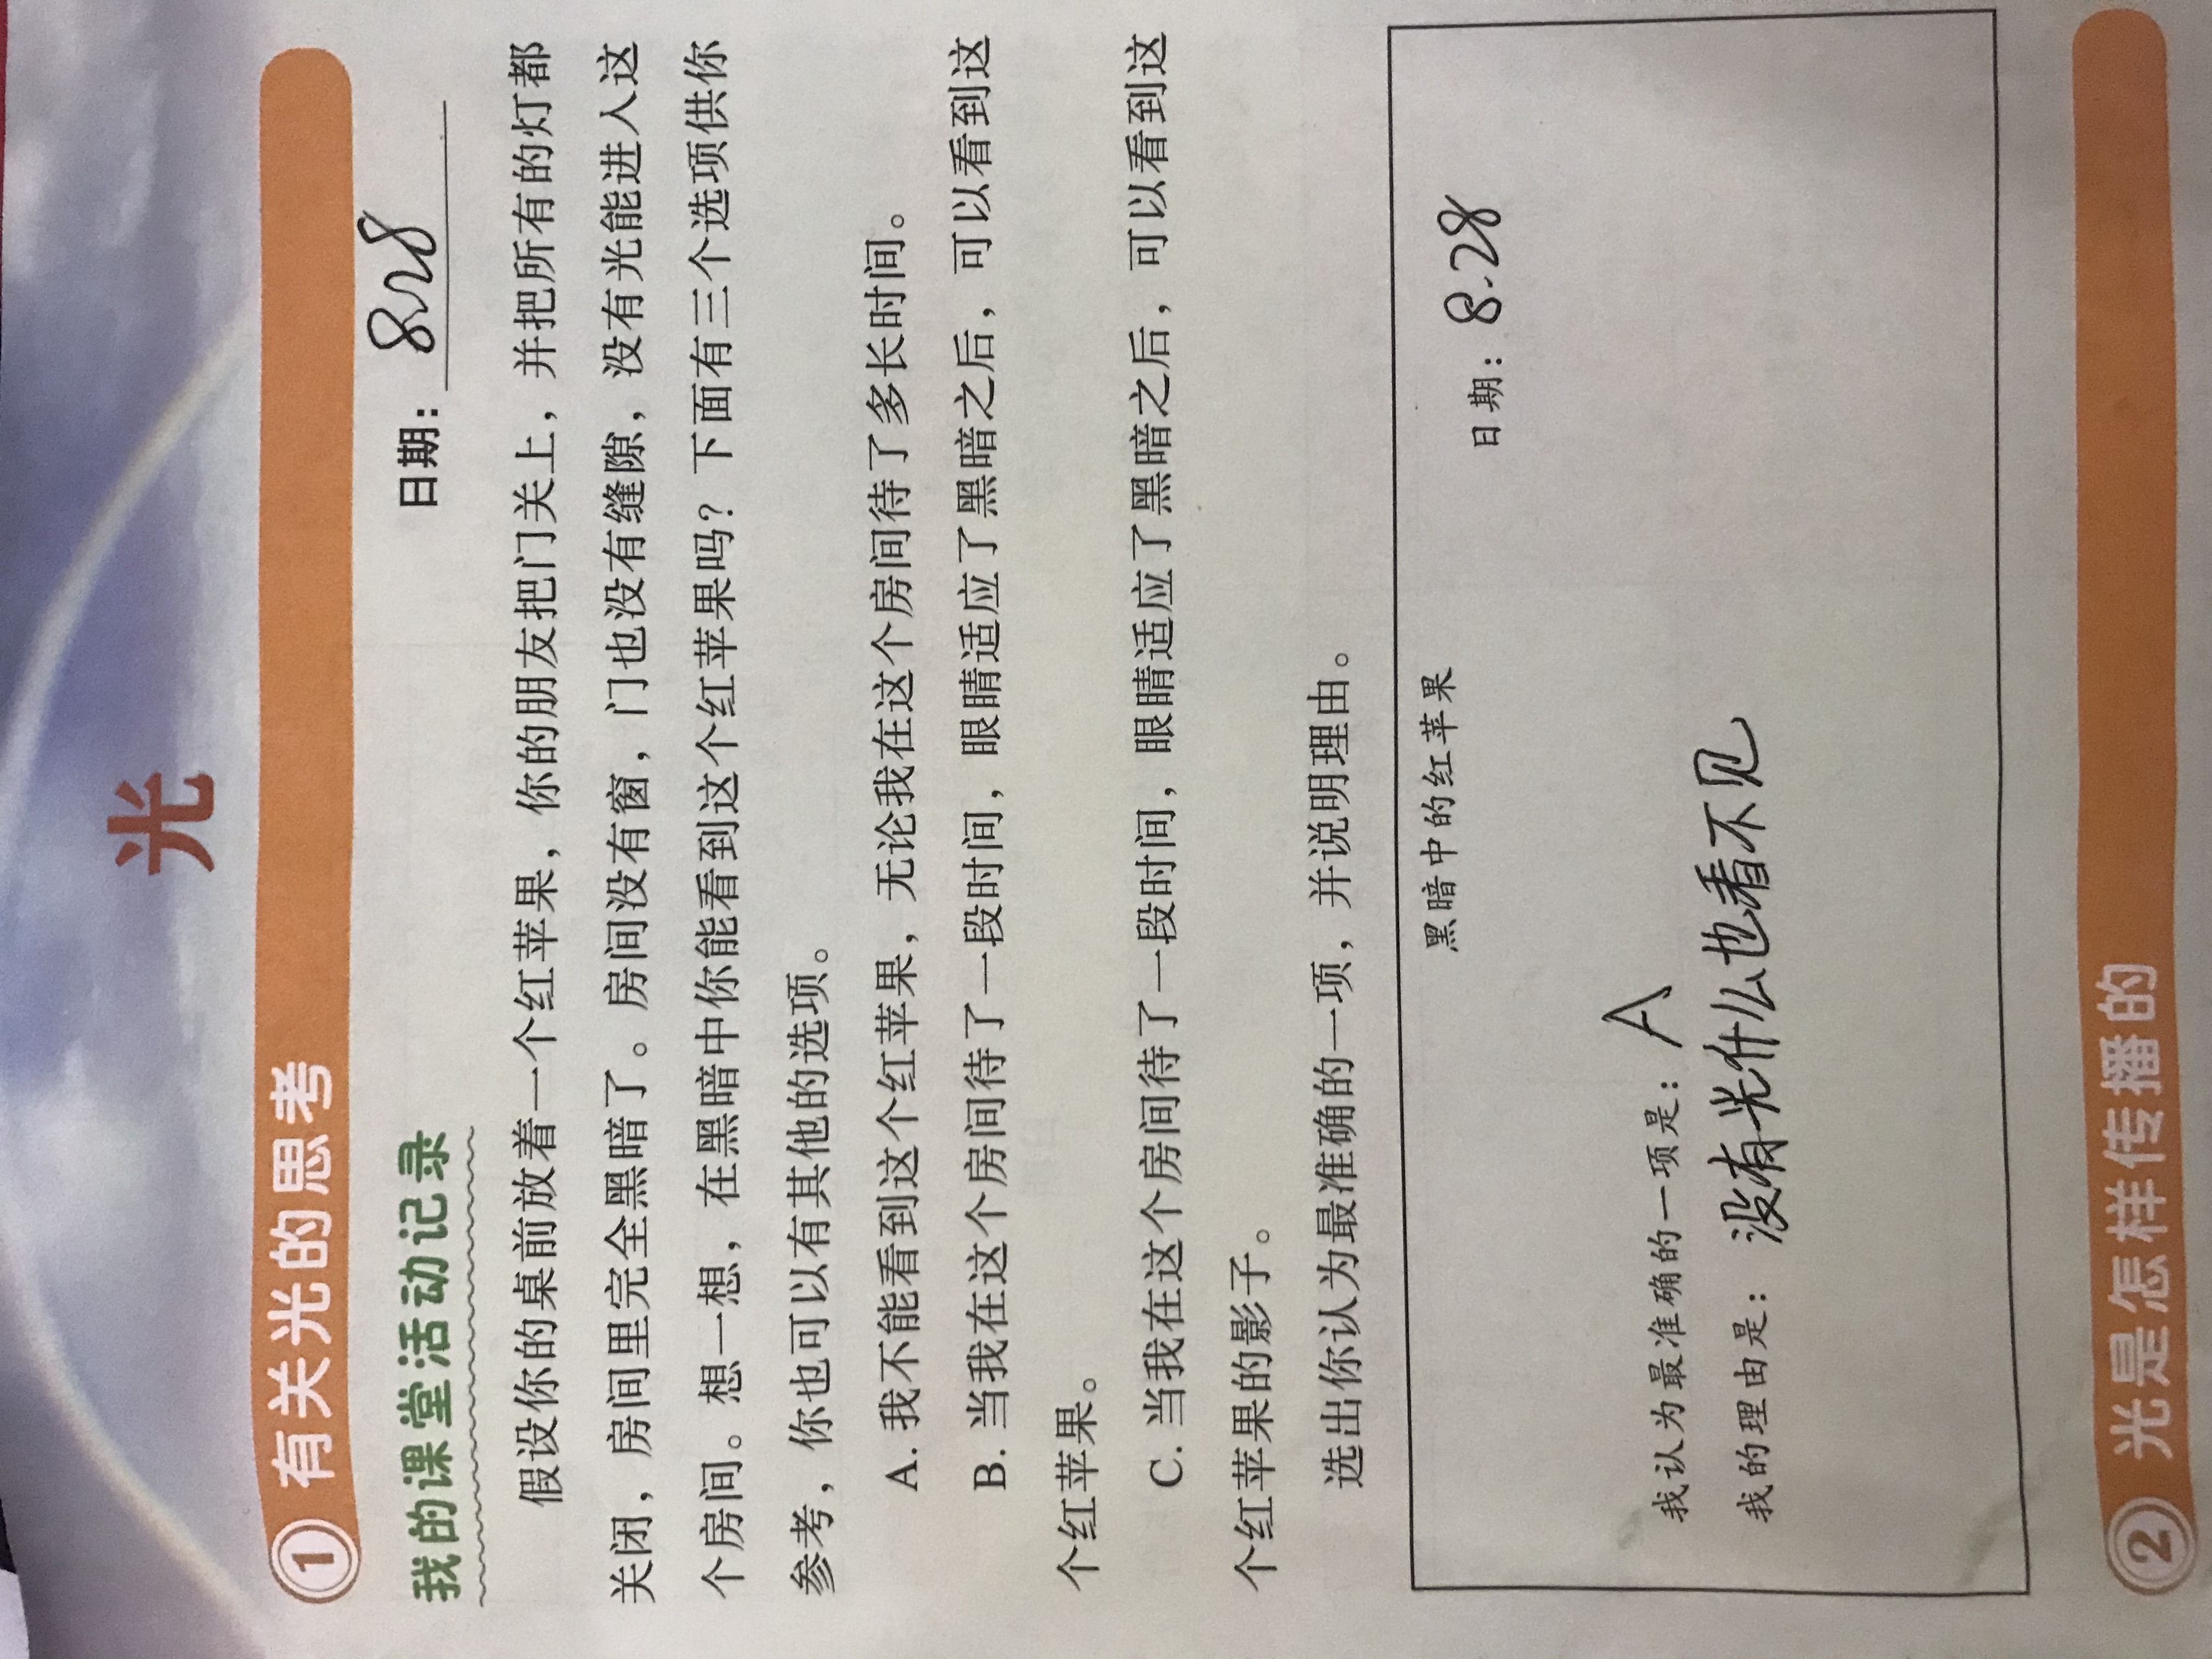 光
① 有关光的思考
我的课堂活动记录
日期：8.28
假设你的桌前放着一个红苹果，你的朋友把门关上，并把所有的灯都
关闭，房间里完全黑暗了。房间没有窗，门也没有缝隙，没有光能进入这
个房间。想一想，在黑暗中你能看到这个红苹果吗？下面有三个选项供你
参考，你也可以有其他的选项。
A. 我不能看到这个红苹果，无论我在这个房间待了多长时间。
B. 当我在这个房间待了一段时间，眼睛适应了黑暗之后，可以看到这
个红苹果。
C. 当我在这个房间待了一段时间，眼睛适应了黑暗之后，可以看到这
个红苹果的影子。
选出你认为最准确的一项，并说明理由。
黑暗中的红苹果
日期：8.28
我认为最准确的一项是：A
我的理由是：没有光什么也看不见
② 光是怎样传播的